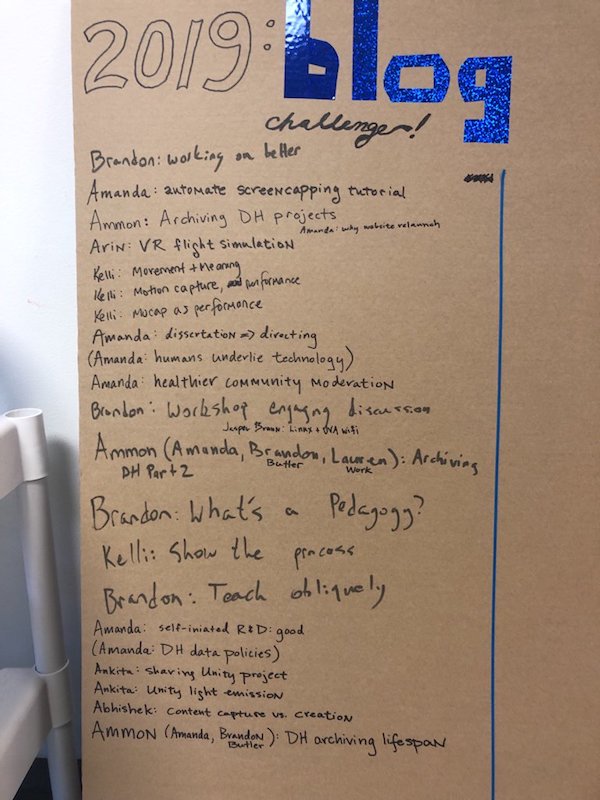 2019: blog
challenge!
Brandon: working on better
Amanda: automate screencapping tutorial
Ammon: Archiving DH projects
Amanda: why website relaunch
Arin: VR flight simulation
Kelli: Movement + Meaning
Kelli: Motion capture, and performance
Kelli: Mocap as performance
Amanda: dissertation => directing
(Amanda: humans underlie technology)
Amanda: healthier community moderation
Brandon: Workshop engagng discussion
Jasper Braun: Linux + UVA wifi
Ammon (Amanda, Brandon, Lauren): Archiving
DH Part 2 Butler Work
Brandon: What's a Pedagogy?
Kelli: Show the process
Brandon: Teach obliquely
Amanda: self-iniated R&D: good
(Amanda: DH data policies)
Ankita: sharing Unity project
Ankita: Unity light emission
Abhishek: Content capture vs. creation
Ammon (Amanda, Brandon): DH archiving lifespan
Butler